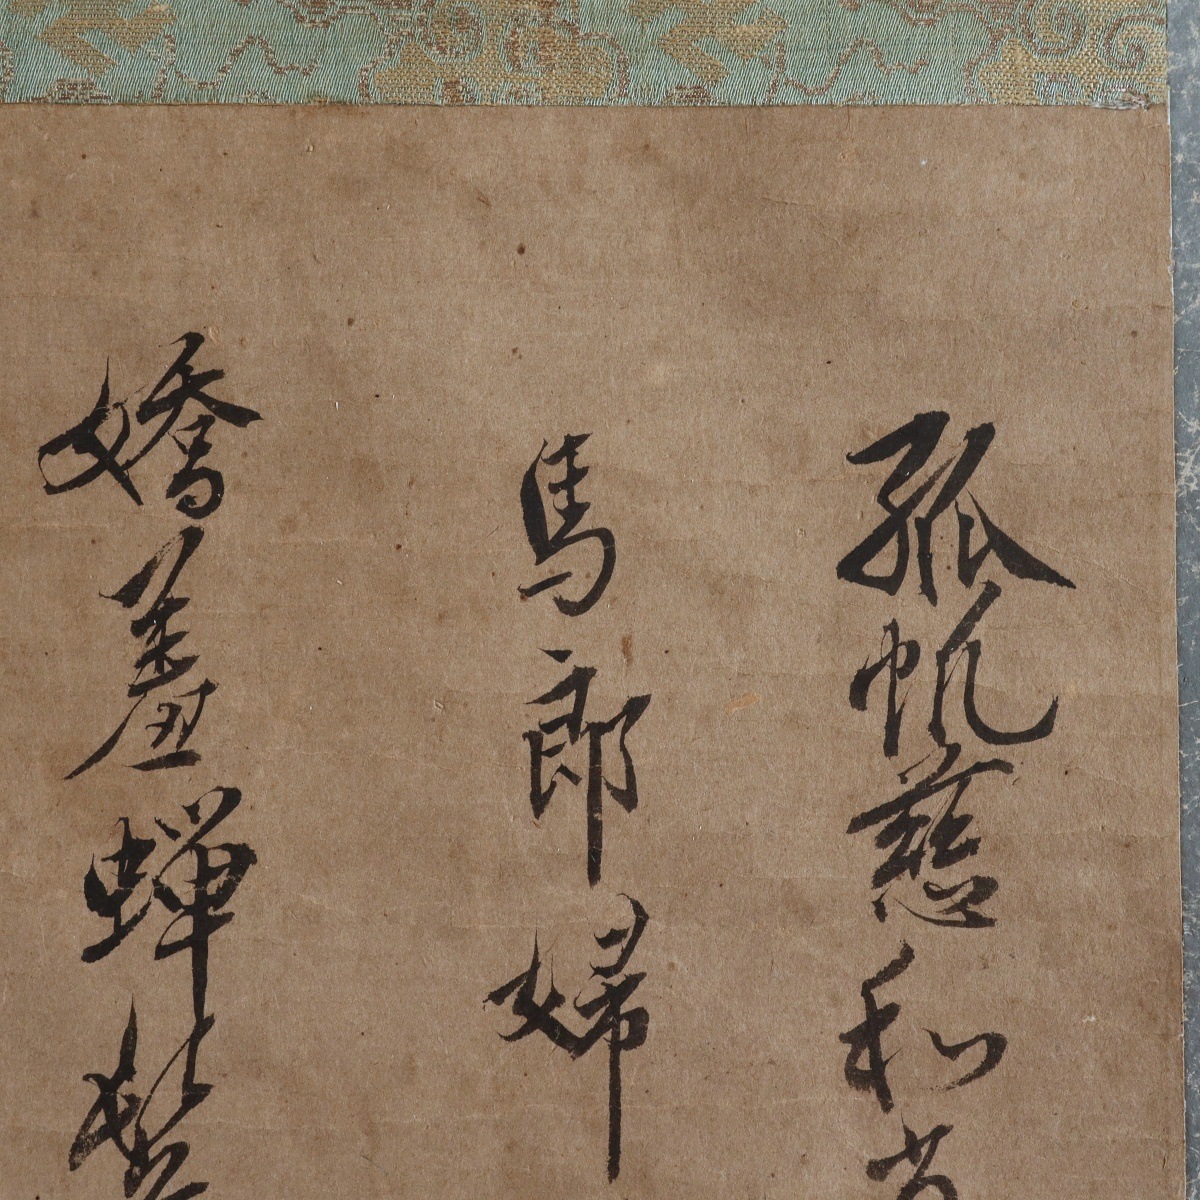 孤帆慈和尚
馬郎婦
嬌羞蟬鬢